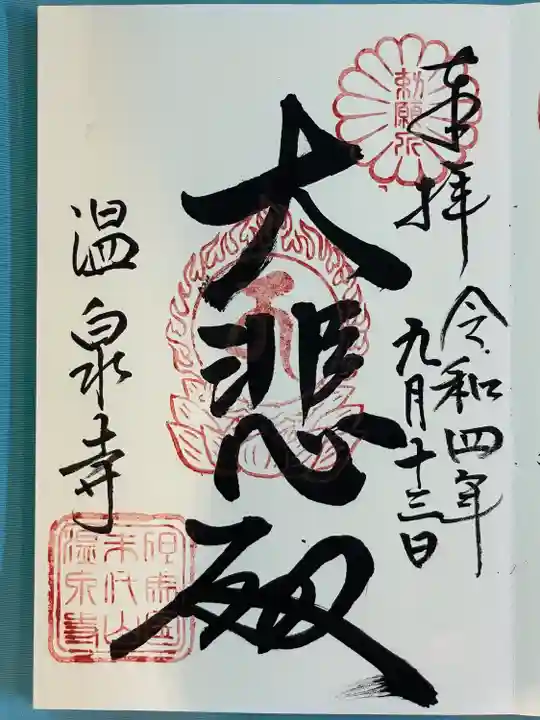 奉拝
勅願所
令和四年
九月十三日
大悲殿
温泉寺
但馬国
末代山
温泉寺